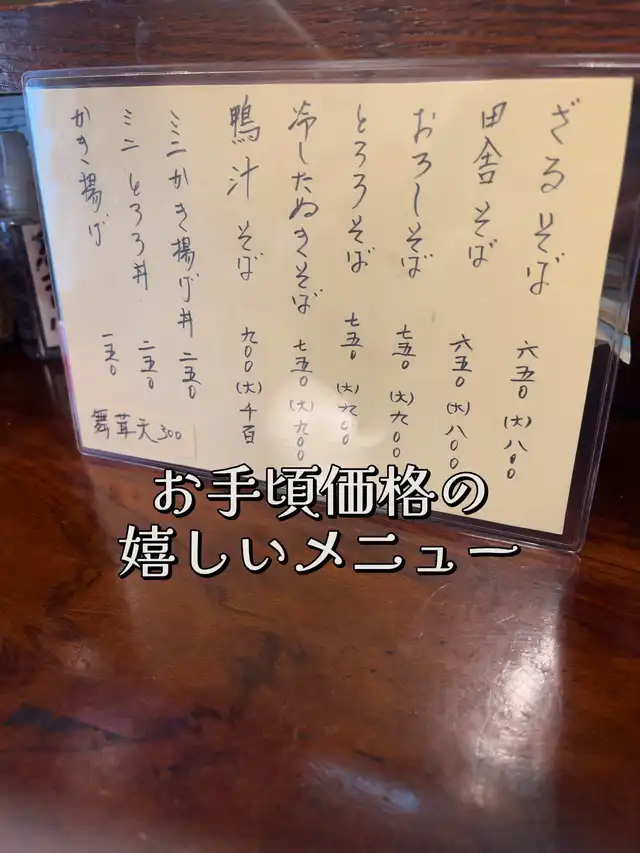 ざるそば 六五〇 (大)八〇〇
田舎そば 六五〇 (大)八〇〇
おろしそば 七五〇 (大)九〇〇
とろろそば 七五〇 (大)九〇〇
冷したぬきそば 七五〇 (大)九〇〇
鴨汁そば 九〇〇 (大)千百
ミニかき揚げ丼 二五〇
ミニとろろ丼 二五〇
かき揚げ 一五〇
舞茸天300
お手頃価格の
嬉しいメニュー